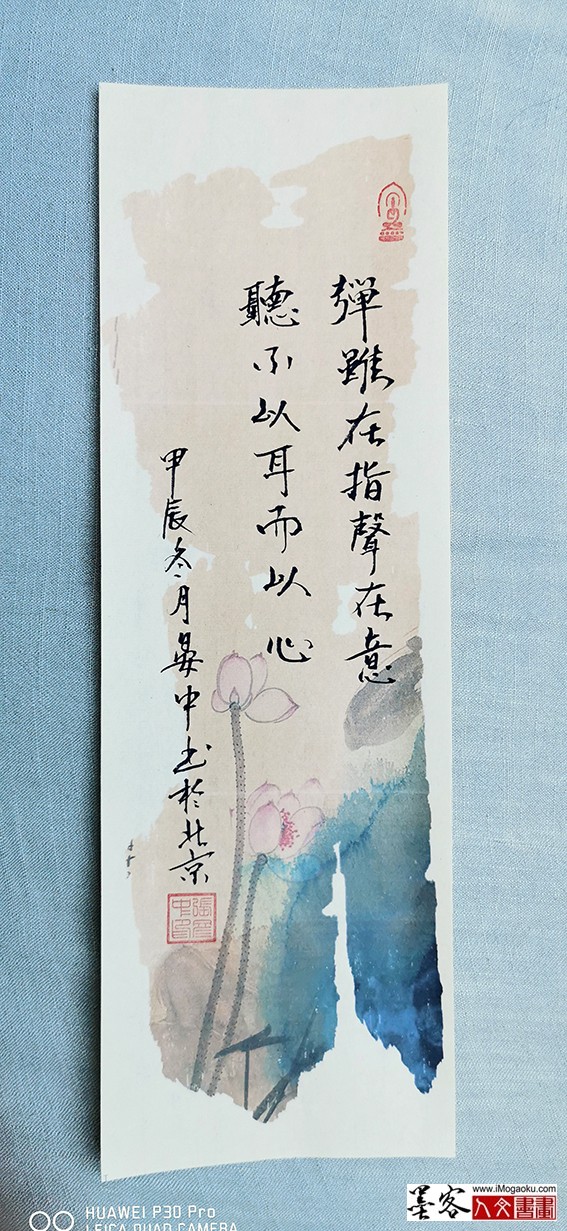 彈雖在指聲在意
聽不以耳而以心
甲辰冬月晏中书於北京
HUAWEI P30 Pro
LEICA QUAD CAMERA
墨客
www.iMogaoku.com
人文書畫